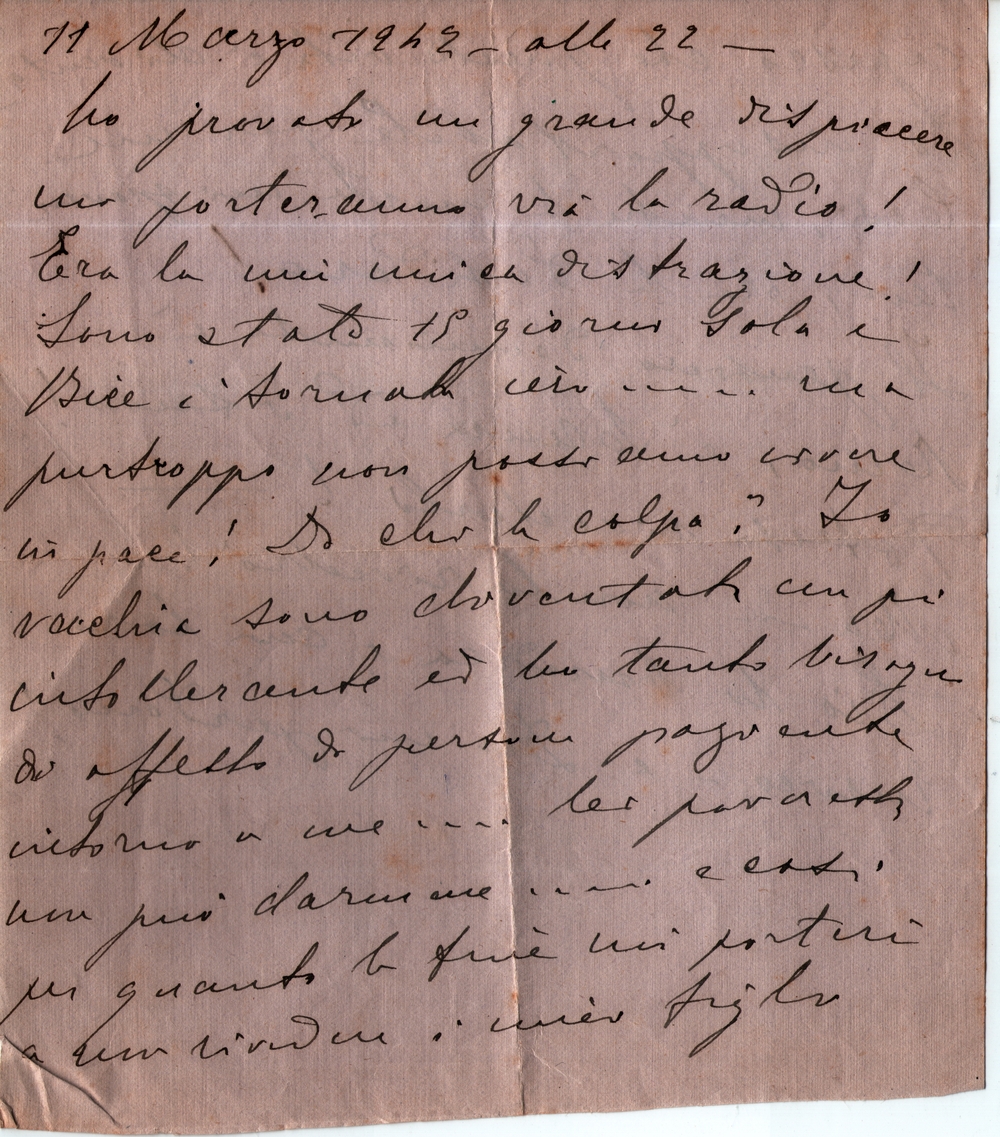 11 Marzo 1942 – alle 22 –
ho provato un grande dispiacere
mi porteranno via la radio!
Era la mia unica distrazione!
Sono stata 15 giorni sola e
Bice è tornata ieri ..... ma
purtroppo non possiamo vivere
in pace! Di chi la colpa? Io
vecchia sono diventata un pò
intollerante ed ho tanto bisogno
di affetto di persone paziente
intorno a me .... lei poveretta
non può darmene ..... e così
per quanto la fine mi porterà
a non rivedere i miei figli